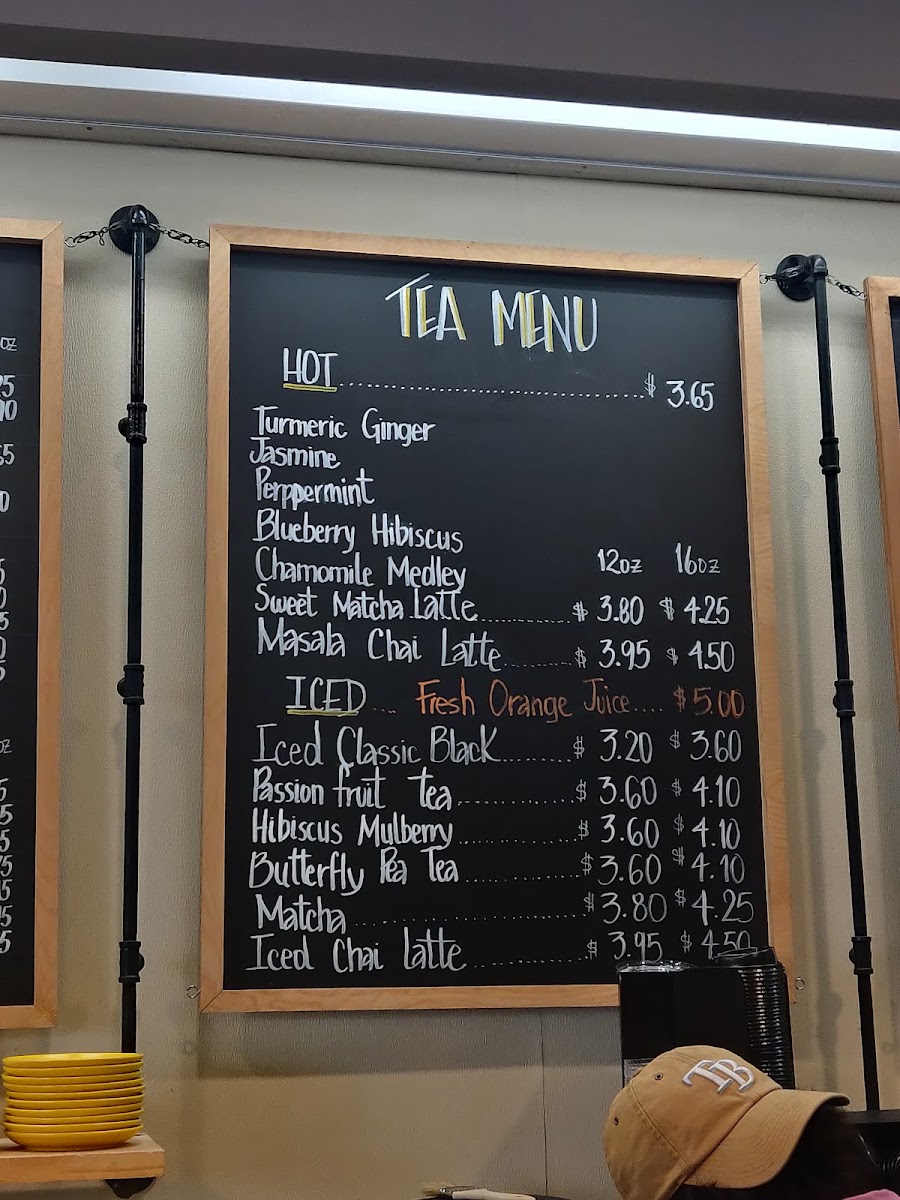 TEA MENU
HOT........................................$ 3.65
Turmeric Ginger
Jasmine
Perppermint
Blueberry Hibiscus
12oz 16oz
Chamomile Medley
Sweet Matcha Latte............$ 3.80 $ 4.25
Masala Chai Latte..........$ 3.95 $ 4.50
ICED .... Fresh Orange Juice.... $ 5.00
Iced Classic Black..........$ 3.20 $ 3.60
Passion fruit tea..............$ 3.60 $ 4.10
Hibiscus Mulberry..............$ 3.60 $ 4.10
Butterfly Pea Tea..............$ 3.60 $ 4.10
Matcha..............................$ 3.80 $ 4.25
Iced Chai latte..............$ 3.95 $ 4.50
TB